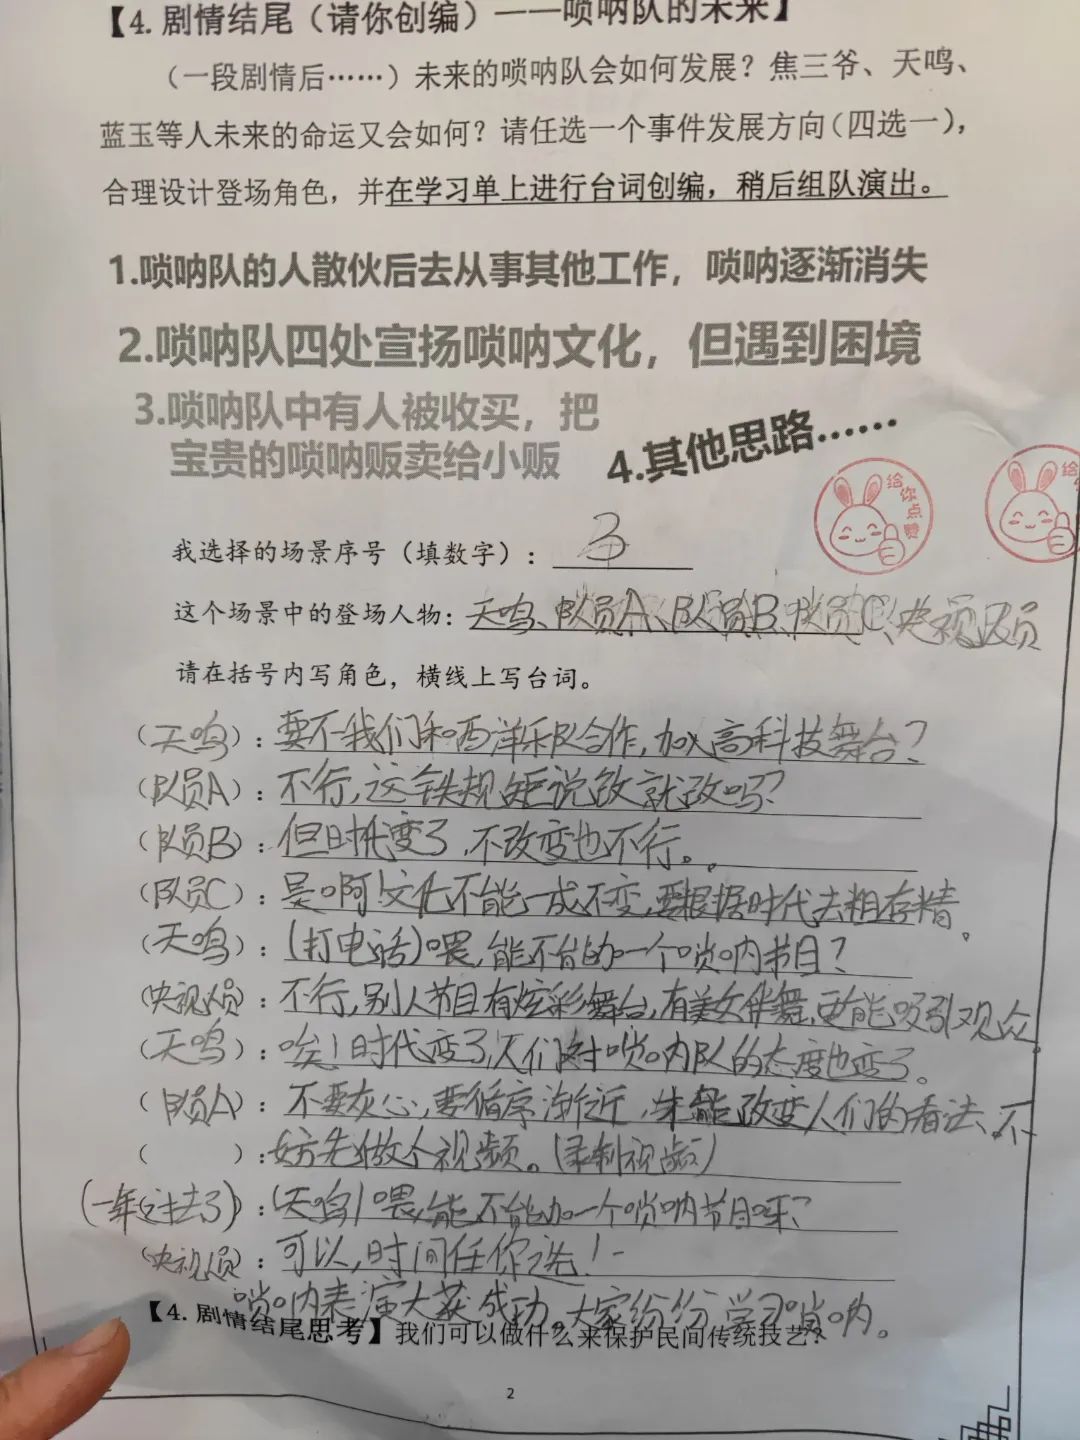 【4. 剧情结尾（请你创编）——唢呐队的未来】
（一段剧情后……）未来的唢呐队会如何发展？焦三爷、天鸣、
蓝玉等人未来的命运又会如何？请任选一个事件发展方向（四选一），
合理设计登场角色，并在学习单上进行台词创编，稍后组队演出。
1.唢呐队的人散伙后去从事其他工作，唢呐逐渐消失
2.唢呐队四处宣扬唢呐文化，但遇到困境
3.唢呐队中有人被收买，把
宝贵的唢呐贩卖给小贩
4.其他思路……
给你点赞
给
我选择的场景序号（填数字）：
这个场景中的登场人物：天鸣、队员A、队员B、队员C、央视人员
请在括号内写角色，横线上写台词。
（天鸣）：要不我们和西洋乐队合作，加入高科技舞台？
（队员A）：不行，这铁规矩说改就改吗？
（队员B）：但时代变了，不改变也不行。
（队员C）：是啊！文化不能一成不变，要根据时代去粗存精。
（天鸣）：（打电话）喂，能不能加一个唢呐节目？
（央视人员：不行，别人节目有炫彩舞台，有美女伴舞，更能吸引观众。
（天鸣）：唉！时代变了，人们对唢呐队的态度也变了。
（队员A）：不要灰心，要循序渐近，才能改变人们的看法、不
（ ）：妨先做个视频。（录制视频）
（一年过去了）：（天鸣）喂，能不能加一个唢呐节目呀？
（央视人员）：可以，时间任你选！
唢呐表演大获成功。大家纷纷学习唢呐。
【4. 剧情结尾思考】我们可以做什么来保护民间传统技艺？
2